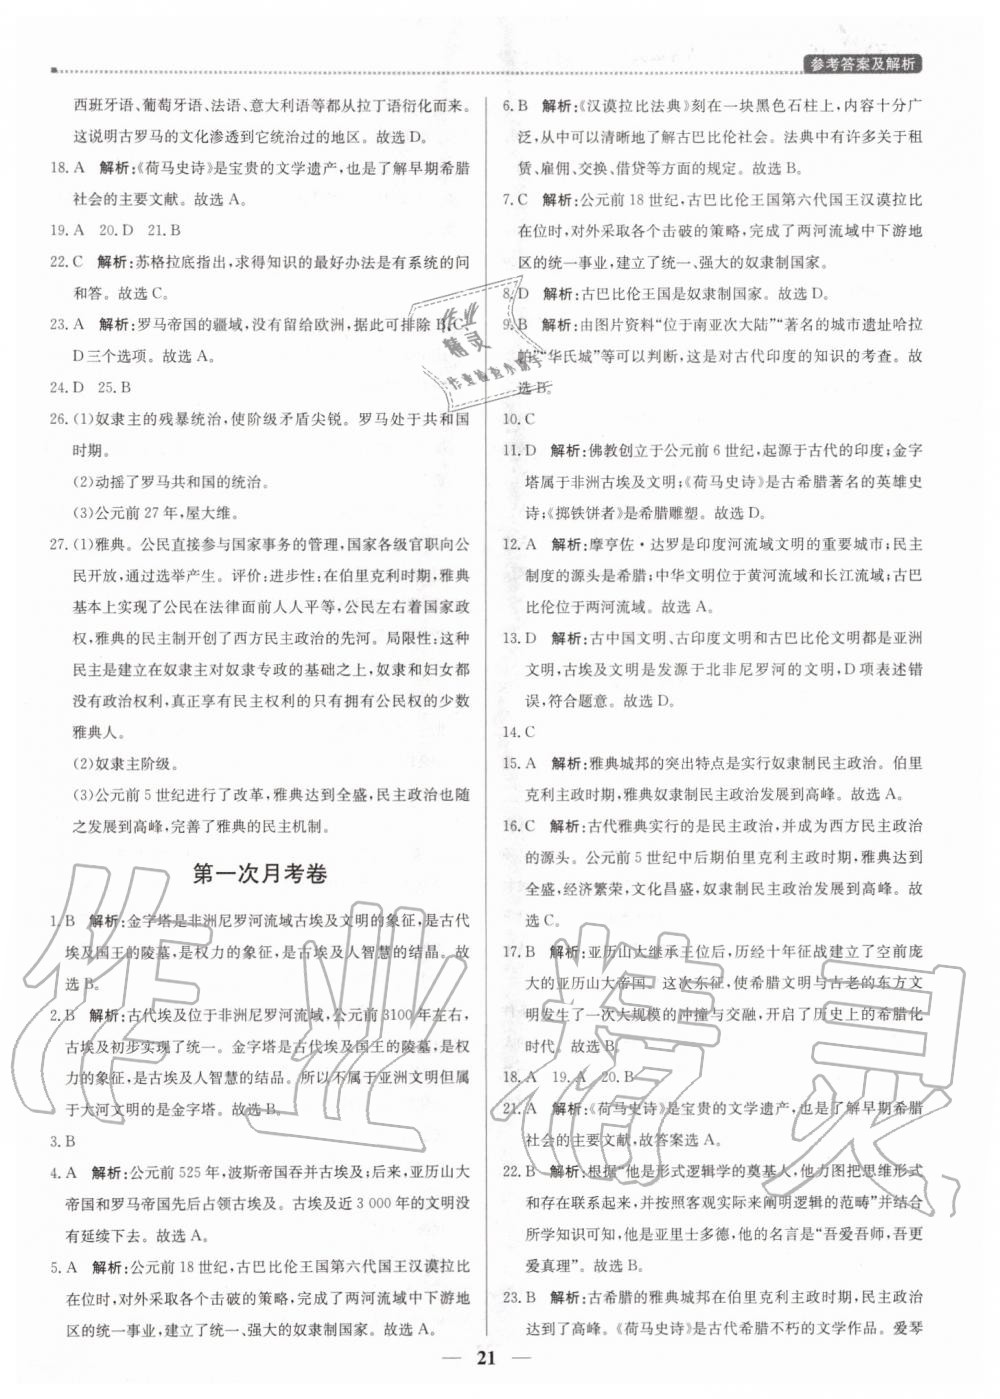 参考答案及解析
西班牙语、葡萄牙语、法语、意大利语等都从拉丁语衍化而来。
这说明古罗马的文化渗透到它统治过的地区。故选 D。
18. A 解析:《荷马史诗》是宝贵的文学遗产,也是了解早期希腊
社会的主要文献。故选 A。
19. A 20. D 21. B
22. C 解析:苏格拉底指出,求得知识的最好办法是有系统的问
和答。故选 C。
23. A 解析:罗马帝国的疆域,没有留给欧洲,据此可排除 B、C、
D三个选项。故选 A。
24. D 25. B
26. (1)奴隶主的残暴统治,使阶级矛盾尖锐。罗马处于共和国
时期。
(2)动摇了罗马共和国的统治。
(3)公元前 27 年,屋大维。
27. (1)雅典。公民直接参与国家事务的管理,国家各级官职向公
民开放,通过选举产生。评价:进步性:在伯里克利时期,雅典
基本上实现了公民在法律面前人人平等,公民左右着国家政
权,雅典的民主制开创了西方民主政治的先河。局限性:这种
民主是建立在奴隶主对奴隶专政的基础之上,奴隶和妇女都
没有政治权利,真正享有民主权利的只有拥有公民权的少数
雅典人。
(2)奴隶主阶级。
(3)公元前 5 世纪进行了改革,雅典达到全盛,民主政治也随
之发展到高峰,完善了雅典的民主机制。
第一次月考卷
1. B 解析:金字塔是非洲尼罗河流域古埃及文明的象征,是古代
埃及国王的陵墓,是权力的象征,是古埃及人智慧的结晶。故
选 B。
2. B 解析:古代埃及位于非洲尼罗河流域,公元前 3100 年左右,
古埃及初步实现了统一。金字塔是古代埃及国王的陵墓,是权
力的象征,是古埃及人智慧的结晶。所以不属于亚洲文明但属
于大河文明的是金字塔。故选 B。
3. B
4. A 解析:公元前 525 年,波斯帝国吞并古埃及;后来,亚历山大
帝国和罗马帝国先后占领古埃及。古埃及近 3 000 年的文明没
有延续下去。故选 A。
5. A 解析:公元前 18 世纪,古巴比伦王国第六代国王汉谟拉比
在位时,对外采取各个击破的策略,完成了两河流域中下游地
区的统一事业,建立了统一、强大的奴隶制国家。故选 A。
6. B 解析:《汉谟拉比法典》刻在一块黑色石柱上,内容十分广
泛,从中可以清晰地了解古巴比伦社会。法典中有许多关于租
赁、雇佣、交换、借贷等方面的规定。故选 B。
7. C 解析:公元前 18 世纪,古巴比伦王国第六代国王汉谟拉比
在位时,对外采取各个击破的策略,完成了两河流域中下游地
区的统一事业,建立了统一、强大的奴隶制国家。
8. D 解析:古巴比伦王国是奴隶制国家。故选 D。
9. B 解析:由图片资料“位于南亚次大陆”“著名的城市遗址哈拉
帕”“华氏城”等可以判断,这是对古代印度的知识的考查。故
选 B。
10. C
11. D 解析:佛教创立于公元前 6 世纪,起源于古代的印度;金字
塔属于非洲古埃及文明;《荷马史诗》是古希腊著名的英雄史
诗;《掷铁饼者》是希腊雕塑。故选 D。
12. A 解析:摩亨佐·达罗是印度河流域文明的重要城市;民主
制度的源头是希腊;中华文明位于黄河流域和长江流域;古巴
比伦位于两河流域。故选 A。
13. D 解析:古中国文明、古印度文明和古巴比伦文明都是亚洲
文明,古埃及文明是发源于北非尼罗河的文明,D 项表述错
误,符合题意。故选 D。
14. C
15. A 解析:雅典城邦的突出特点是实行奴隶制民主政治。伯里
克利主政时期,雅典奴隶制民主政治发展到高峰。故选 A。
16. C 解析:古代雅典实行的是民主政治,并成为西方民主政治
的源头。公元前 5 世纪中后期伯里克利主政时期,雅典达到
全盛,经济繁荣,文化昌盛,政治民主发展到高峰。故
选 C。
17. B 解析:亚历山大继承王位后,历经十年征战建立了空前庞
大的亚历山大帝国。这次东征,使希腊文明与古老的东方文
明发生了一次大规模的冲撞与交融,开启了历史上的希腊化
时代。故选 B。
18. A 19. A 20. B
21. A 解析:《荷马史诗》是宝贵的文学遗产,也是了解早期希腊
社会的主要文献,故答案选 A。
22. B 解析:根据“他是形式逻辑学的奠基人,他力图把思维形式
和存在联系起来,并按照客观实际来阐明逻辑的范畴”并结合
所学知识可知,他是亚里士多德,他的名言是“吾爱吾师,吾更
爱真理”。故选 B。
23. B 解析:古希腊的雅典城邦在伯里克利主政时期,民主政治
达到了高峰。《荷马史诗》是古代希腊不朽的文学作品。爱琴
21
作业精灵
作业检查小助手